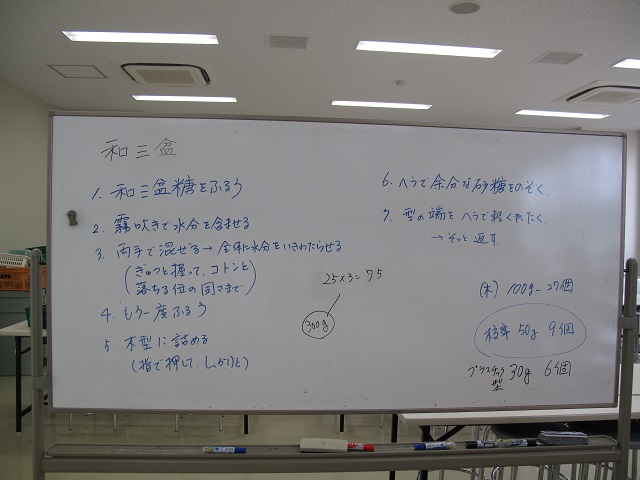 和三盆
1. 和三盆糖をふるう
2. 霧吹きで水分を含ませる
3. 両手で混ぜる→全体に水分をいきわたらせる
(ぎゅっと握って、コトンと
落ちる位の固さまで)
4. もう一度ふるう
5. 木型に詰める
(指で押して、しっかりと)
25×3=75
300g
6. ヘラで余分な砂糖をのぞく
7. 型の端をヘラで軽くたたく
→そっと返す
(木) 100g-27個
50g 9個
プラスチック
型 30g 6個